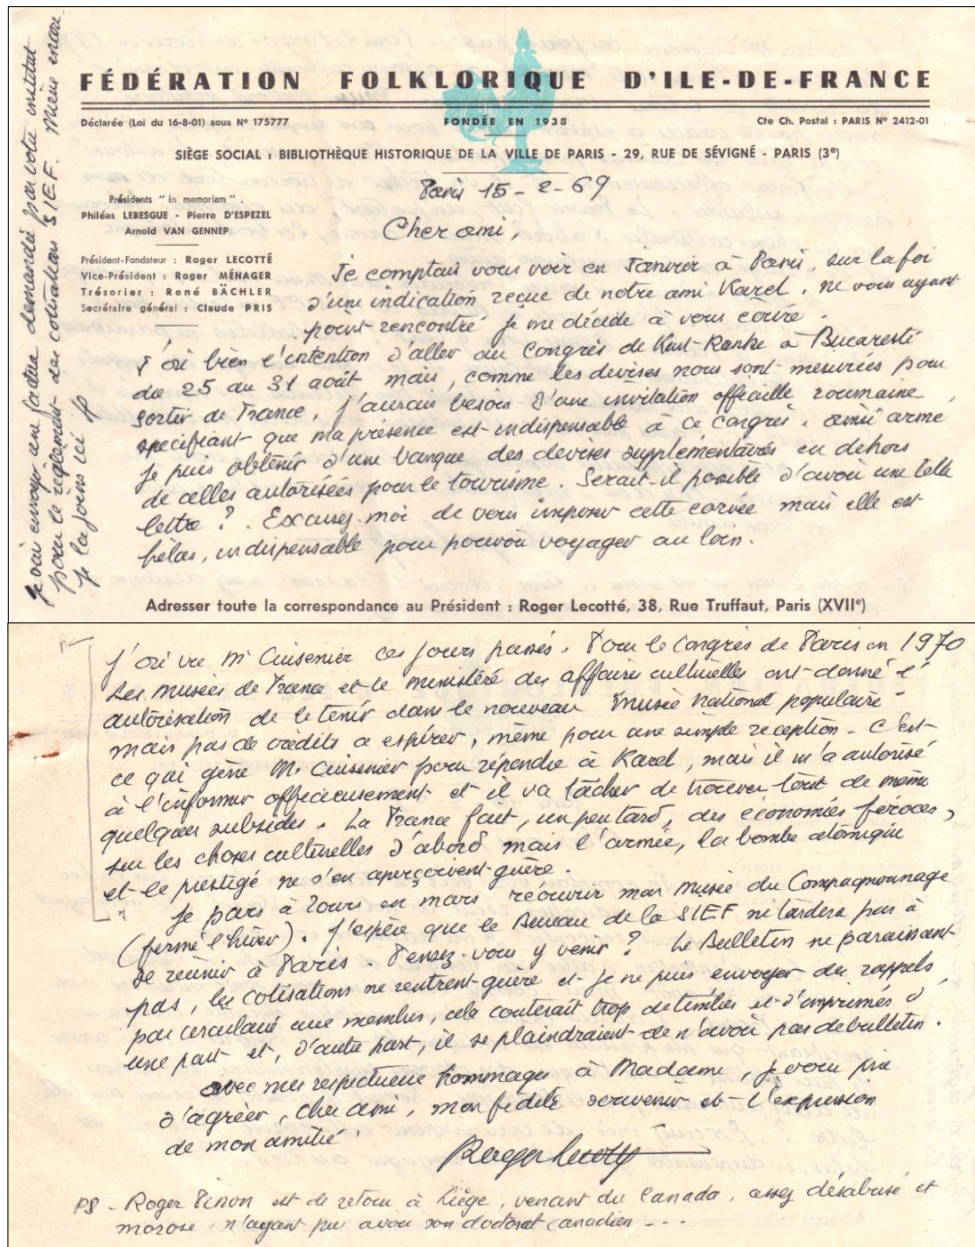 FÉDÉRATION FOLKLORIQUE D'ILE-DE-FRANCE
Déclarée (Loi du 16-8-01) sous Nº 175777 FONDÉE EN 1938 Cte Ch. Postal : PARIS Nº 2412-01
SIÈGE SOCIAL : BIBLIOTHÈQUE HISTORIQUE DE LA VILLE DE PARIS - 29, RUE DE SÉVIGNÉ - PARIS (3e)
Présidents "in memoriam".
Philéas LEBESGUE - Pierre D'ESPEZEL
Arnold VAN GENNEP
Président-Fondateur : Roger LECOTTÉ
Vice-Président : Roger MÉNAGER
Trésorier : René BÄCHLER
Secrétaire général : Claude PRIS
Paris 15-2-69
Cher ami,
Je comptais vous voir en Janvier à Paris, sur la foi
d'une indication reçue de notre ami Karel. ne vous ayant
point rencontré je me décide à vous écrire.
J'ai bien l'intention d'aller au Congrès de Kurt-Ranke à Bucarest
du 25 au 31 août mais, comme les devises nous sont mesurées pour
sortir de France, j'aurais besoin d'une invitation officielle roumaine
spécifiant que ma présence est indispensable à ce congrès. ainsi armé
je puis obtenir d'une banque des devises supplémentaires en dehors
de celles autorisées pour le tourisme. Serait-il possible d'avoir une telle
lettre ? . Excusez-moi de vous imposer cette corvée mais elle est
hélas, indispensable pour pouvoir voyager au loin.
Je vais envoyer une facture demandée par votre institut
pour le règlement des cotisations SIEF. Mieux encore
je la joins ici
Adresser toute la correspondance au Président : Roger Lecotté, 38, Rue Truffaut, Paris (XVIIe)
J'ai vu Mr Cuisenier ces jours passés. Pour le Congrès de Paris en 1970
Les musées de France et le ministère des affaires culturelles ont donné l'
autorisation de le tenir dans le nouveau "Musée national populaire"
mais pas de crédits à espérer, même pour une simple réception. C'est
ce qui gêne Mr. Cuisenier pour répondre à Karel, mais il m'a autorisé
à l'informer officieusement et il va tâcher de trouver tout de même
quelques subsides. La France fait, un peu tard, des économies féroces,
sur les choses culturelles d'abord mais l'armée, la bombe atomique
et le prestige ne s'en aperçoivent guère.
Je pars à Tours en mars réouvrir mon Musée du Compagnonnage
(fermé l'hiver). J'espère que le Bureau de la SIEF ne tardera pas à
se réunir à Paris. Pensez-vous y venir ? Le Bulletin ne paraissant
pas, les cotisations ne rentrent guère et je ne puis envoyer des rappels
par circulaire aux membres, cela couterait trop de timbres et d'imprimés d'
une part et, d'autre part, il se plaindraient de n'avoir pas de bulletin.
avec mes respectueux hommages à Madame, je vous prie
d'agréer, cher ami, mon fidèle souvenir et l'expression
de mon amitié.
Roger Lecotté
PS - Roger Pinon est de retour à Liège, venant du Canada, assez désabusé et
morose, n'ayant pu avoir son doctorat canadien ---